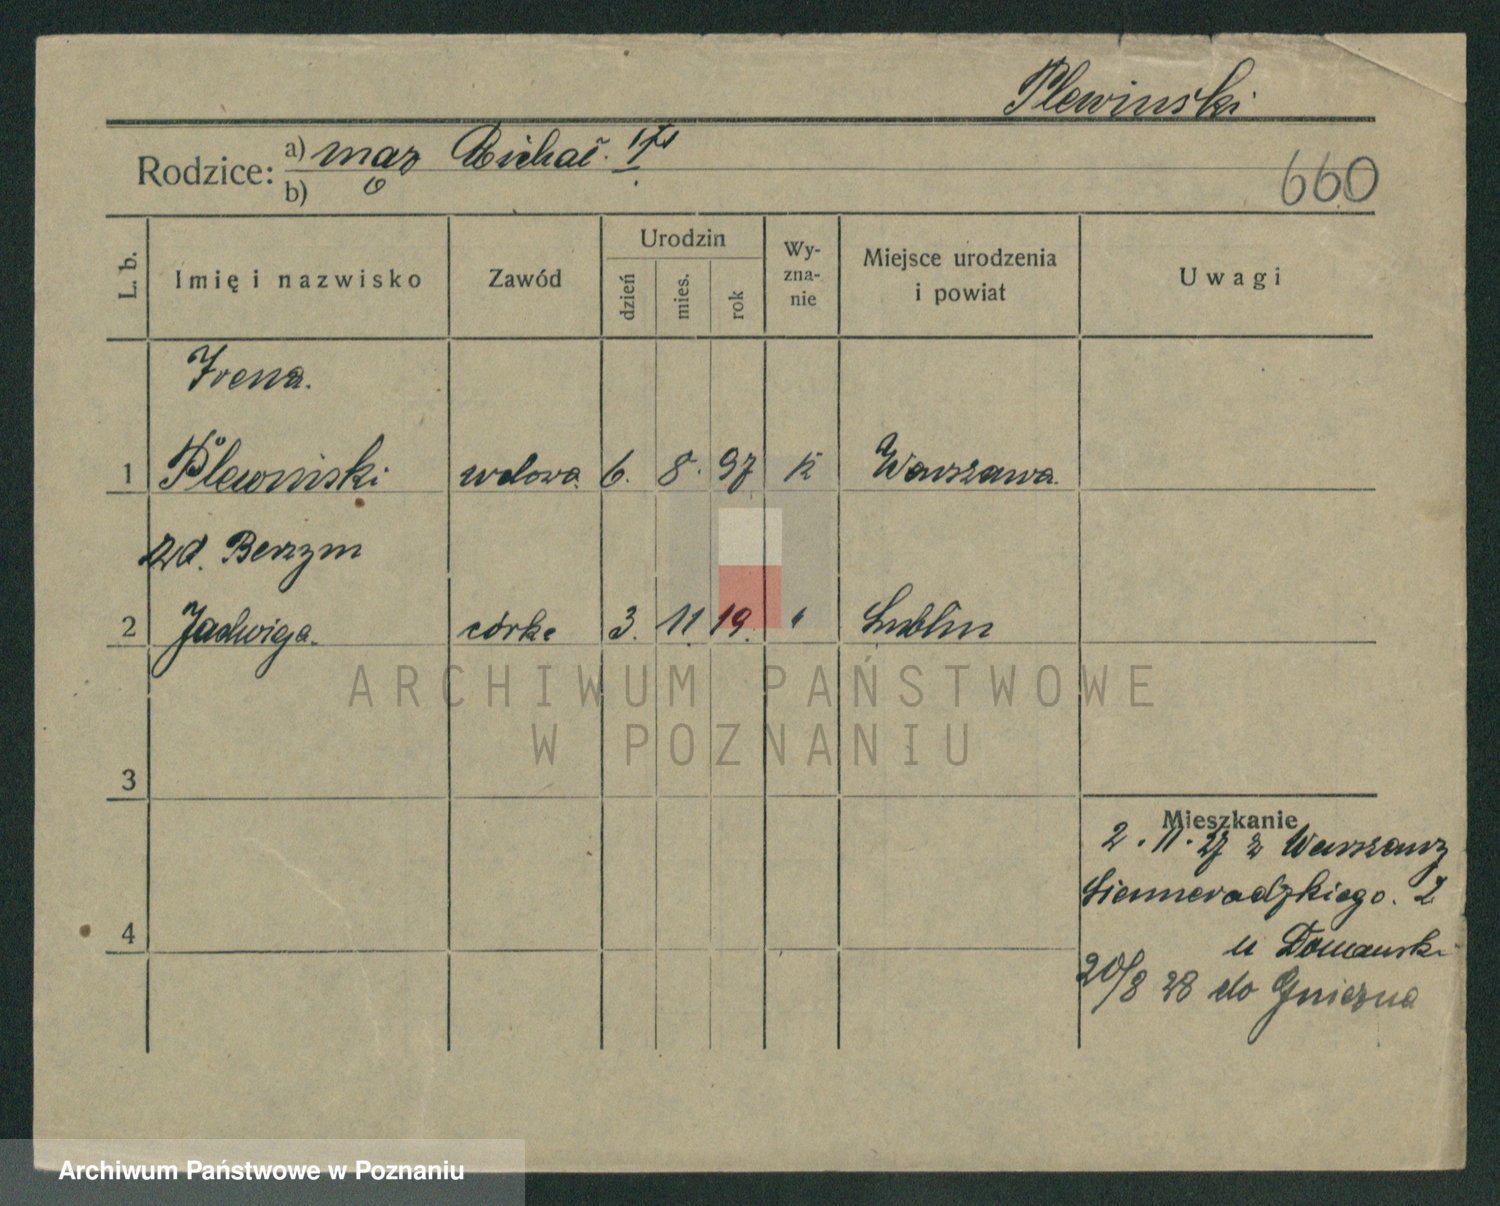 Plewinski
Rodzice: a) mąz Michał.
b)
660
L. b. Imię i nazwisko Zawód Urodzin dzień mies. rok Wy-zna-nie Miejsce urodzenia i powiat Uwagi
Irena.
1 Plewinski wdowa 6. 8. 97 k Warszawa.
zd. Berzym
2 Jadwiga. córka 3. 11 19. " Lublin
ARCHIWUM PAŃSTWOWE
W POZNANIU
3
Mieszkanie
2. 11. 27 z Warszawy
Siemieradzkiego. 2
4
u Domanski
20/8 28 do Gniezna
Archiwum Państwowe w Poznaniu